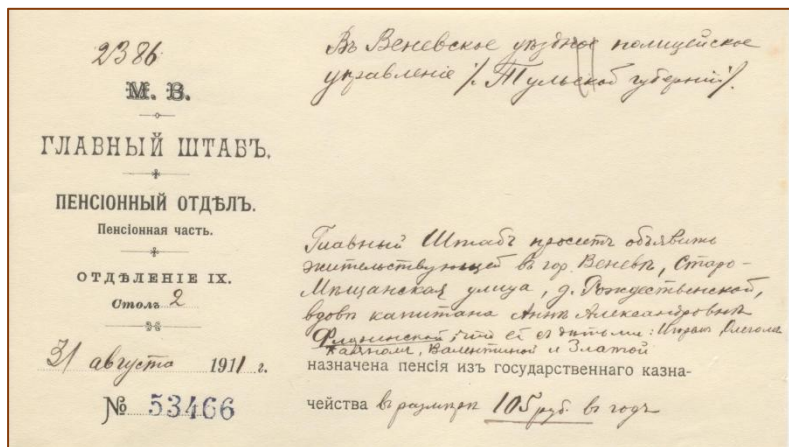 2386
М. В.
ГЛАВНЫЙ ШТАБЪ.
ПЕНСІОННЫЙ ОТДѢЛЪ.
Пенсіонная часть.
ОТДѢЛЕНІЕ IX.
Столъ 2
31 августа 1911 г.
№ 53466
Въ Веневское уѣздное полицейское
управленіе /. Тульской губерніи /.
Главный Штабъ проситъ объявить
жительствующей въ гор. Веневѣ, Старо-
Мѣщанская улица, д. Рождественской,
вдовѣ капитана Аннѣ Александровнѣ
что ей съ дѣтьми: Игоремъ, Олегомъ
Валентиной и Златой
назначена пенсія изъ государственнаго казна-
чейства въ размѣрѣ 105 руб. въ годъ